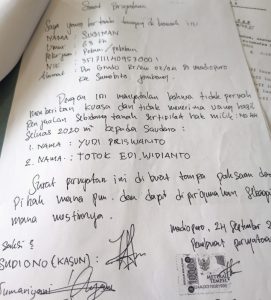 Surat Pernyataan
Saya yang bertanda tangan di bawah ini
NAMA : SUDIMAN
Umur : 63 th
Pekerjaan : Petani / pekebun
NIK :
Alamat : Dsn RT Madiopuro
Kec Sumobito Jombang.
Dengan ini menyatakan bahwa tidak pernah
memberikan kuasa dan tidak menerima uang hasil
Penjualan sebidang tanah sertipikat hak milik
Seluas 2020 m² kepada Saudara :
1. NAMA : YUDI PRISWANTO
2. NAMA : TOTOK EDI WIDIANTO
Surat pernyataan ini di buat tanpa paksaan dari
Pihak mana pun. dan dapat di pergunakan sebagai
mana mestinya.
Madiopuro, 24 September
Pembuat pernyataan
Saksi :
SUDIONO (KASUN) :
10000
METERAI
TEMPEL